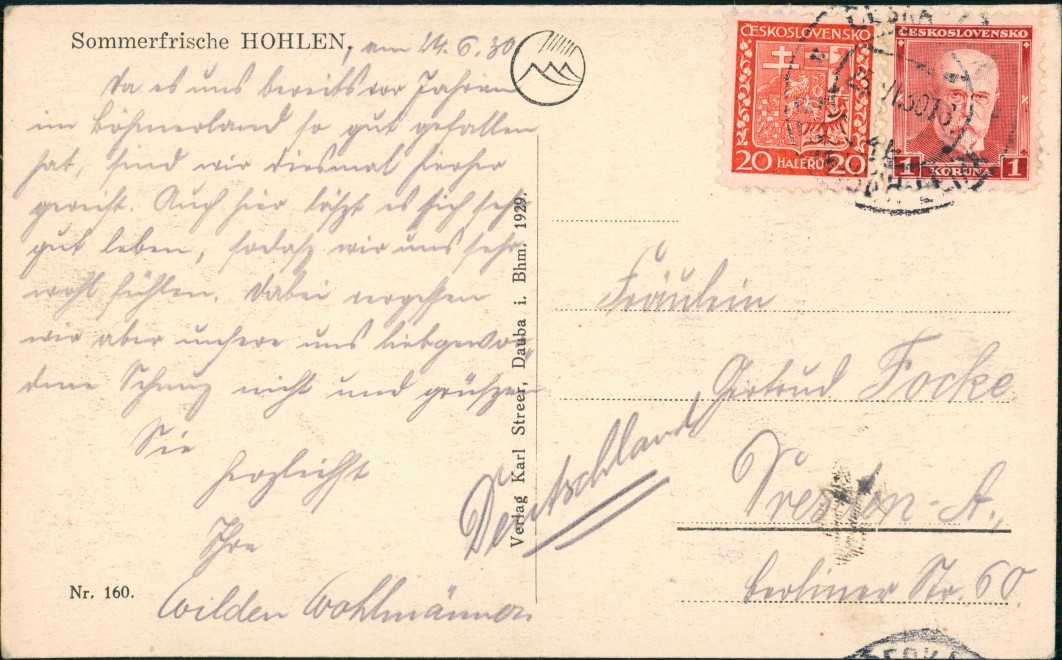 Sommerfrische HOHLEN, am 24.6.30
Da es uns bereits vor Jahren
im Böhmerland so gut gefallen
hat, sind wir diesmal hierher
gereist. Auch hier läßt es sich sehr
gut leben, sodaß wir uns sehr
wohl fühlen. Dabei vergessen
wir aber unsere uns liebgewor-
dene nicht und grüßen
Sie
herzlichst
Ihre
Wilden Wohlmänner
Nr. 160.
Verlag Karl Streer, Dauba i. Bhm. 1929.
ČESKOSLOVENSKO
20 HALÉŘŮ 20
ČESKOSLOVENSKO
1 KORUNA 1
ČESKÁ
Fräulein
Gertrud Focke
Deutschland
Dresden-A.,
Berliner Str. 60.